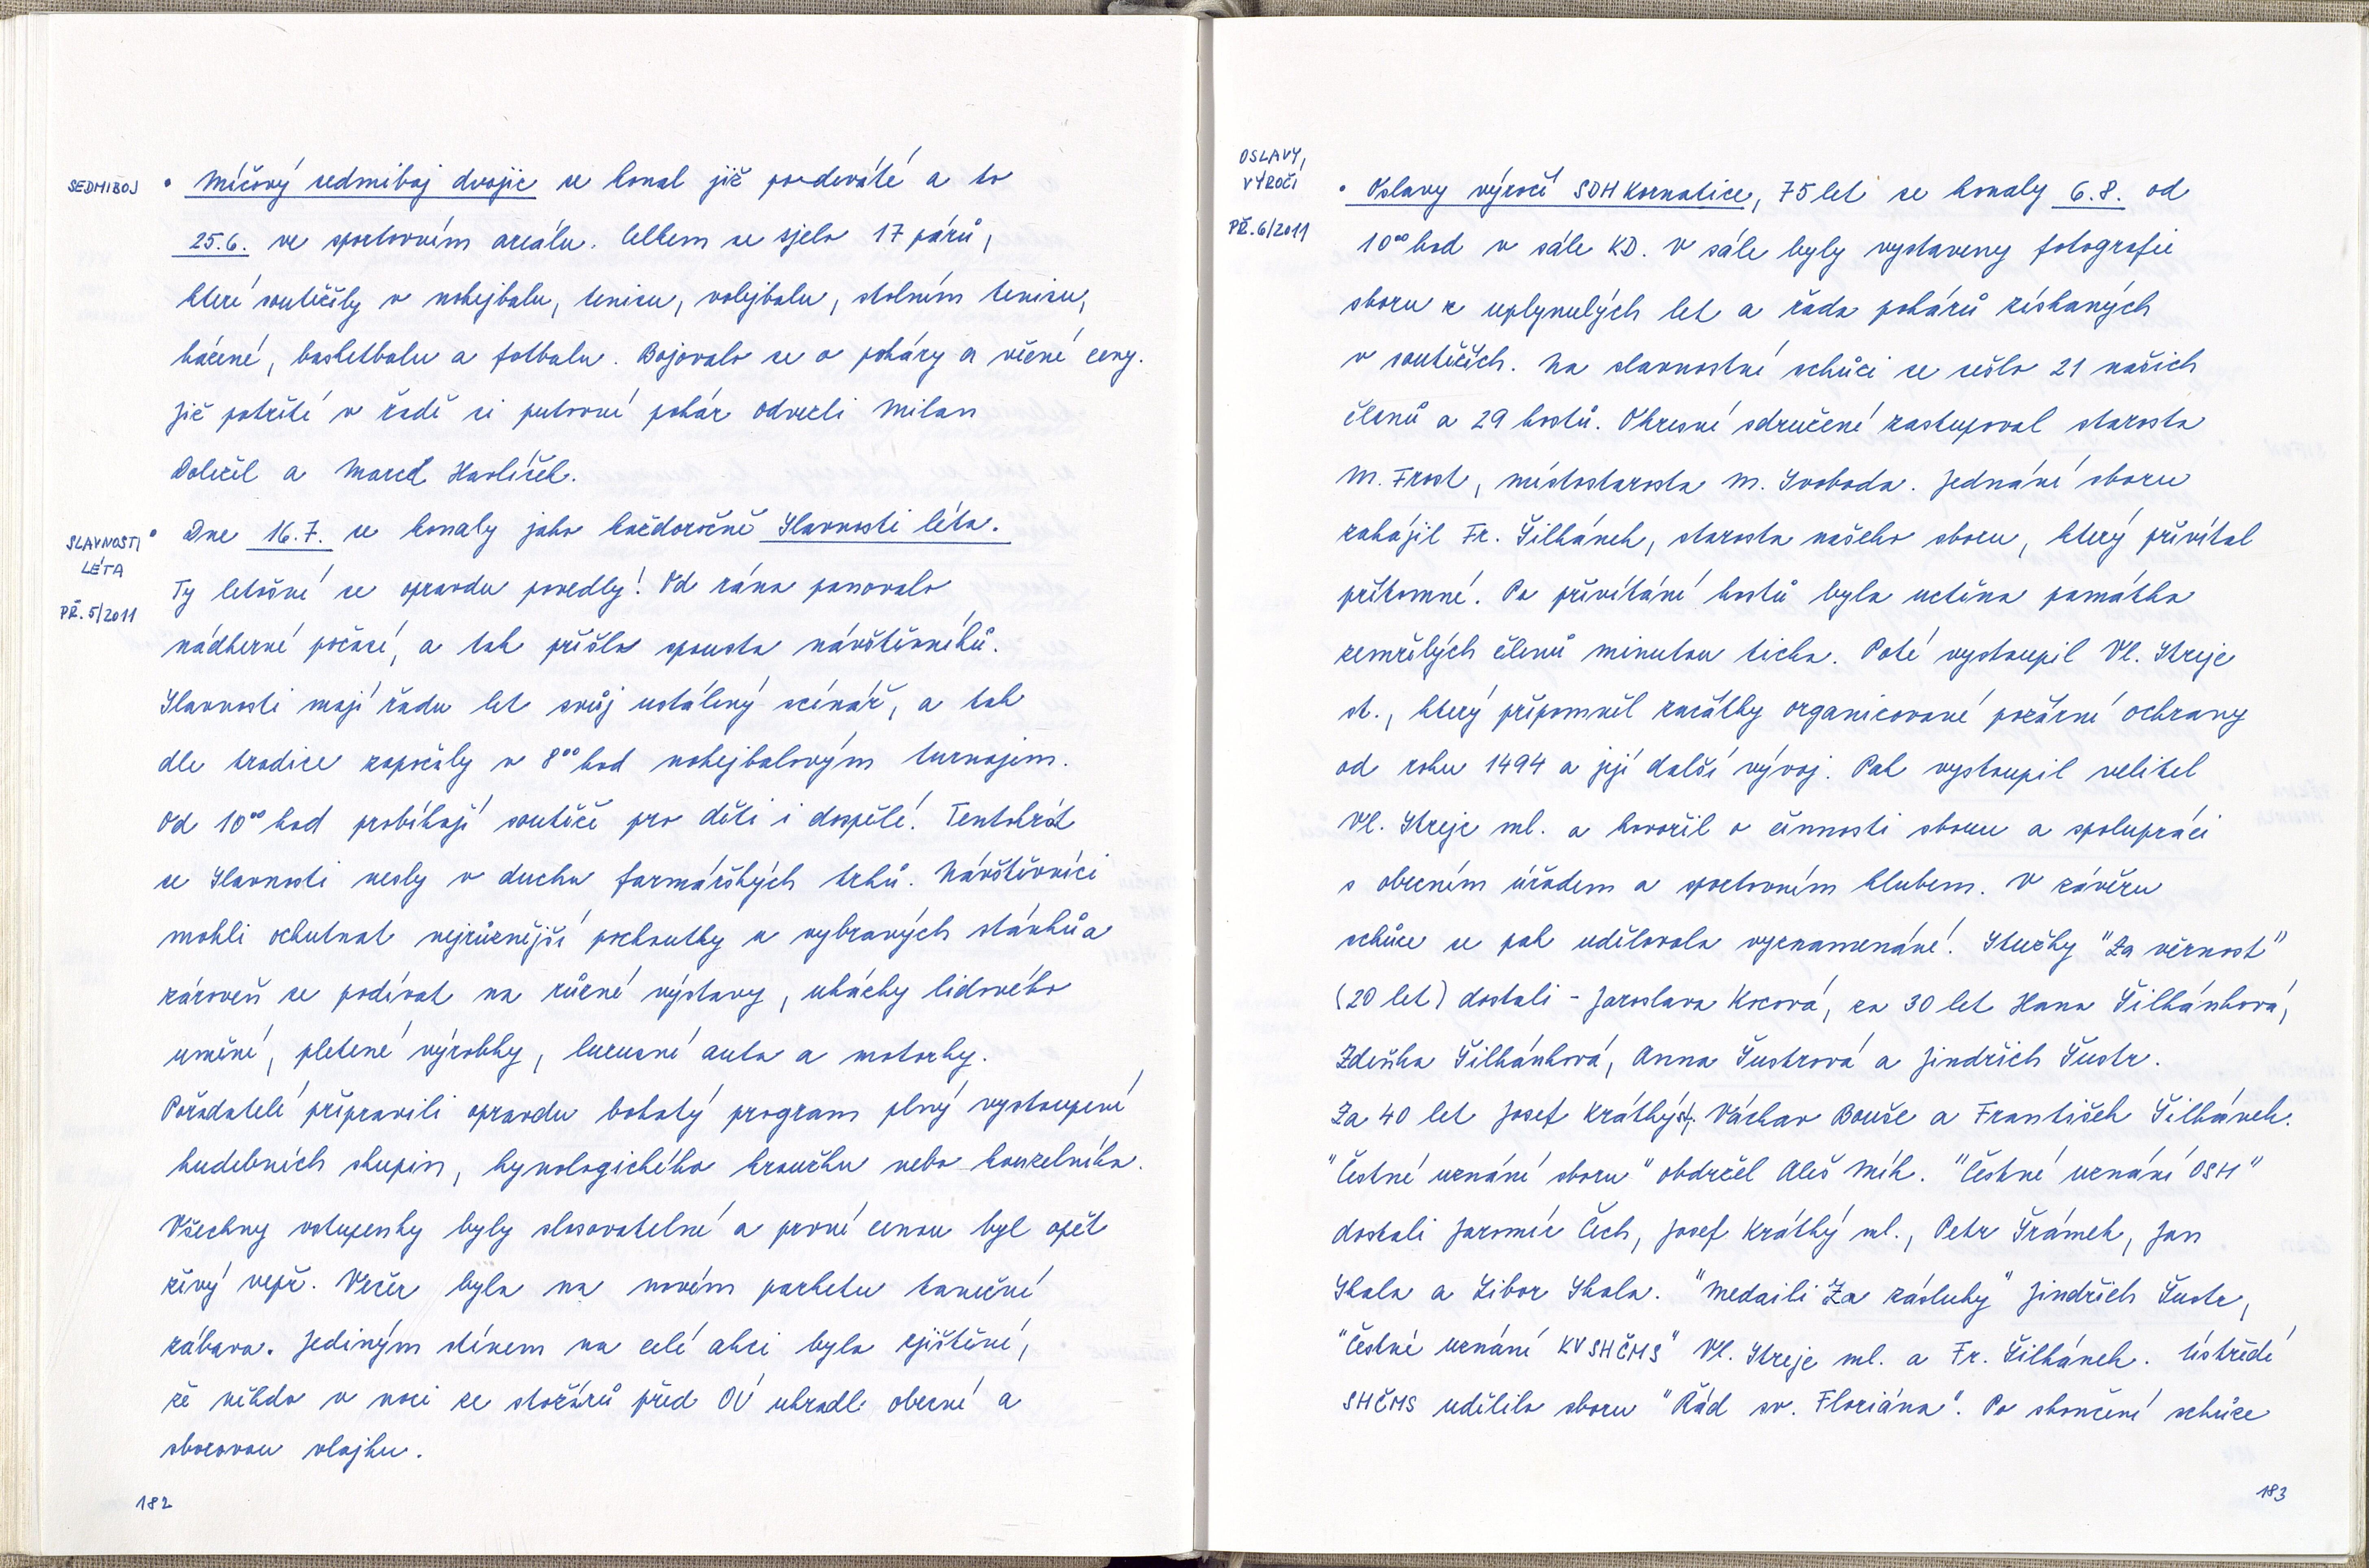 SEDMIBOJ
• Míčový sedmiboj dvojic se konal již po-deváté a to
25.6. ve sportovním areálu. Celkem se sjelo 17 párů,
které soutěžily v nohejbalu, tenisu, volejbalu, stolním tenisu,
házené, basketbalu a fotbalu. Bojovalo se o poháry a věcné ceny.
Již potřetí v řadě si putovní pohár odvezli Milan
Doležil a Marcel Havlíček.
SLAVNOSTI
LÉTA
PŘ. 5/2011
• Dne 16.7. se konaly jako každoročně Slavnosti léta.
Ty letošní se opravdu povedly! Od rána panovalo
nádherné počasí, a tak přišlo spousta návštěvníků.
Slavnosti mají řadu let svůj ustálený scénář, a tak
dle tradice započaly v 8⁰⁰ hod nohejbalovým turnajem.
Od 10⁰⁰ hod probíhají soutěže pro děti i dospělé. Tentokrát
se Slavnosti nesly v duchu farmářských trhů. Návštěvníci
mohli ochutnat nejrůznější pochoutky u vybraných stánků a
zároveň se podívat na různé výstavy, ukázky lidového
umění, pletené výrobky, luxusní auta a motorky.
Pořadatelé připravili opravdu bohatý program plný vystoupení
hudebních skupin, kynologického kroužku nebo kouzelníka.
Všechny vstupenky byly slosovatelné a první cenou byl opět
živý vepř. Večer byla na novém parketu taneční
zábava. Jediným stínem na celé akci bylo zjištění,
že někdo v noci ze stožárů před OÚ ukradl obecní a
sborovou vlajku.
182
OSLAVY,
VÝROČÍ
PŘ. 6/2011
• Oslavy výročí SDH Kornatice, 75 let se konaly 6.8. od
10⁰⁰ hod v sále KD. V sále byly vystaveny fotografie
sboru z uplynulých let a řada pohárů získaných
v soutěžích. Na slavnostní schůzi se sešlo 21 našich
členů a 29 hostů. Okresní sdružení zastupoval starosta
M. Frost, místostarosta M. Svoboda. Jednání sboru
zahájil Fr. Šilhánek, starosta našeho sboru, který přivítal
přítomné. Po přivítání hostů byla uctěna památka
zemřelých členů minutou ticha. Poté vystoupil Vl. Streje
st., který připomněl začátky organizované požární ochrany
od roku 1494 a její další vývoj. Pak vystoupil velitel
Vl. Streje ml. a hovořil o činnosti sboru a spolupráci
s obecním úřadem a sportovním klubem. V závěru
schůze se pak udělovala vyznamenání. Stužky "Za věrnost"
(20 let) dostali - Jaroslava Kocová, za 30 let Hana Šilhánková,
Zdeňka Šilhánková, Anna Šustrová a Jindřich Šustr.
Za 40 let Josef Krátký st. Václav Bouše a František Šilhánek.
"Čestné uznání sboru" obdržel Aleš Mík. "Čestné uznání OSH"
dostali Jaromír Čech, Josef Krátký ml., Petr Šrámek, Jan
Skala a Libor Skala. "Medaili Za zásluhy" Jindřich Šustr,
"Čestné uznání KVSHČMS" Vl. Streje ml. a Fr. Šilhánek. Ústředí
SHČMS udělilo sboru "Řád sv. Floriána". Po skončení schůze
183